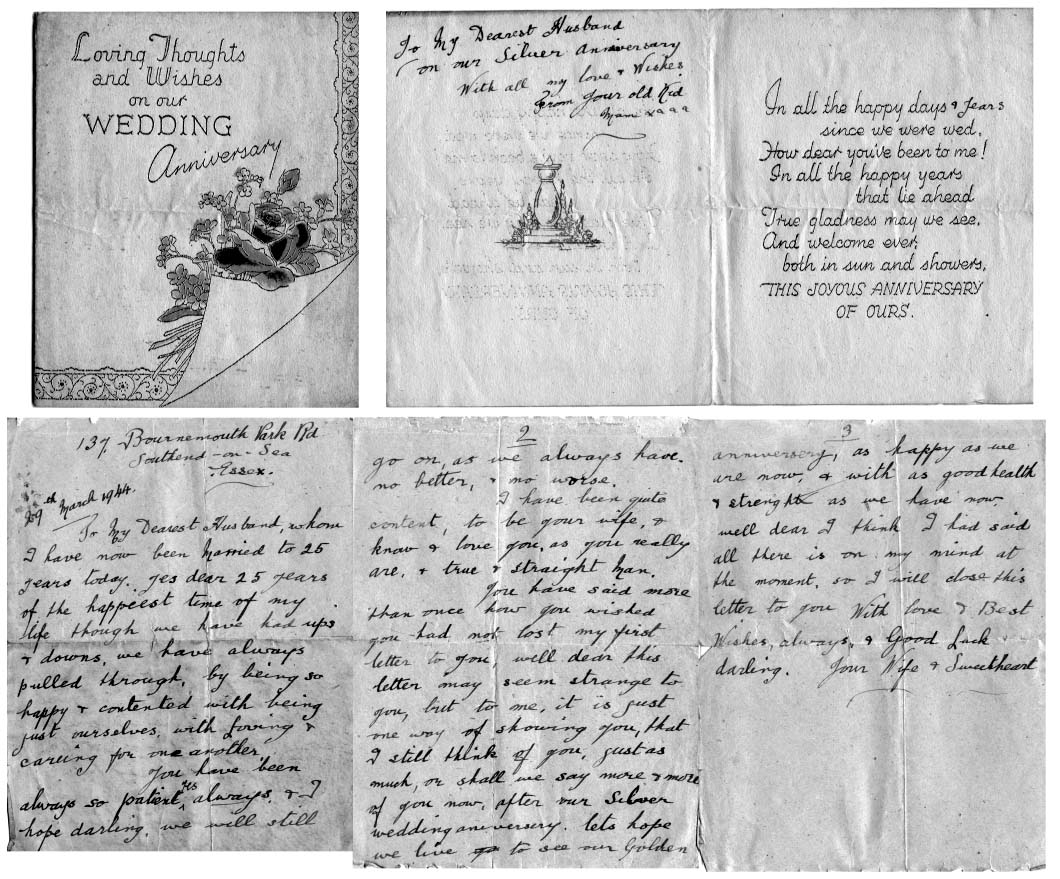 Loving Thoughts
and Wishes
on our
WEDDING
Anniversary
To My Dearest Husband
on our Silver Anniversary
With all my love & Wishes
From your old Kid
In all the happy days & years
since we were wed,
How dear you've been to me!
In all the happy years
that lie ahead
True gladness may we see,
And welcome ever,
both in sun and showers,
THIS JOYOUS ANNIVERSARY
OF OURS.
137, Bournemouth Park Rd
Southend-on-Sea
Essex.
29th March 1944.
To My Dearest Husband, whom
I have now been Married to 25
years today. yes dear 25 years
of the happeest time of my
life though we have had ups
& downs, we have always
pulled through, by being so
happy & contented with being
just ourselves, with Loving &
careing for one another.
You have been
always so patient, yes always, & I
hope darling, we will still
2
go on, as we always have.
no better, & no worse.
I have been quite
content, to be your wife, &
know & love you, as you really
are, & true & straight Man.
You have said more
than once how you wished
you had not lost my first
letter to you, well dear this
letter may seem strange to
you, but to me, it is just
one way of showing you, that
I still think of you, just as
much, or shall we say more & more
of you now, after our Silver
wedding anniversery. lets hope
we live to see our Golden
3
anniversery, as happy as we
are now, & with as good health
& strenght as we have now.
well dear I think I had said
all there is on my mind at
the moment, so I will close this
letter to you With love & Best
Wishes, always, & Good Luck
darling. Your Wife & Sweetheart